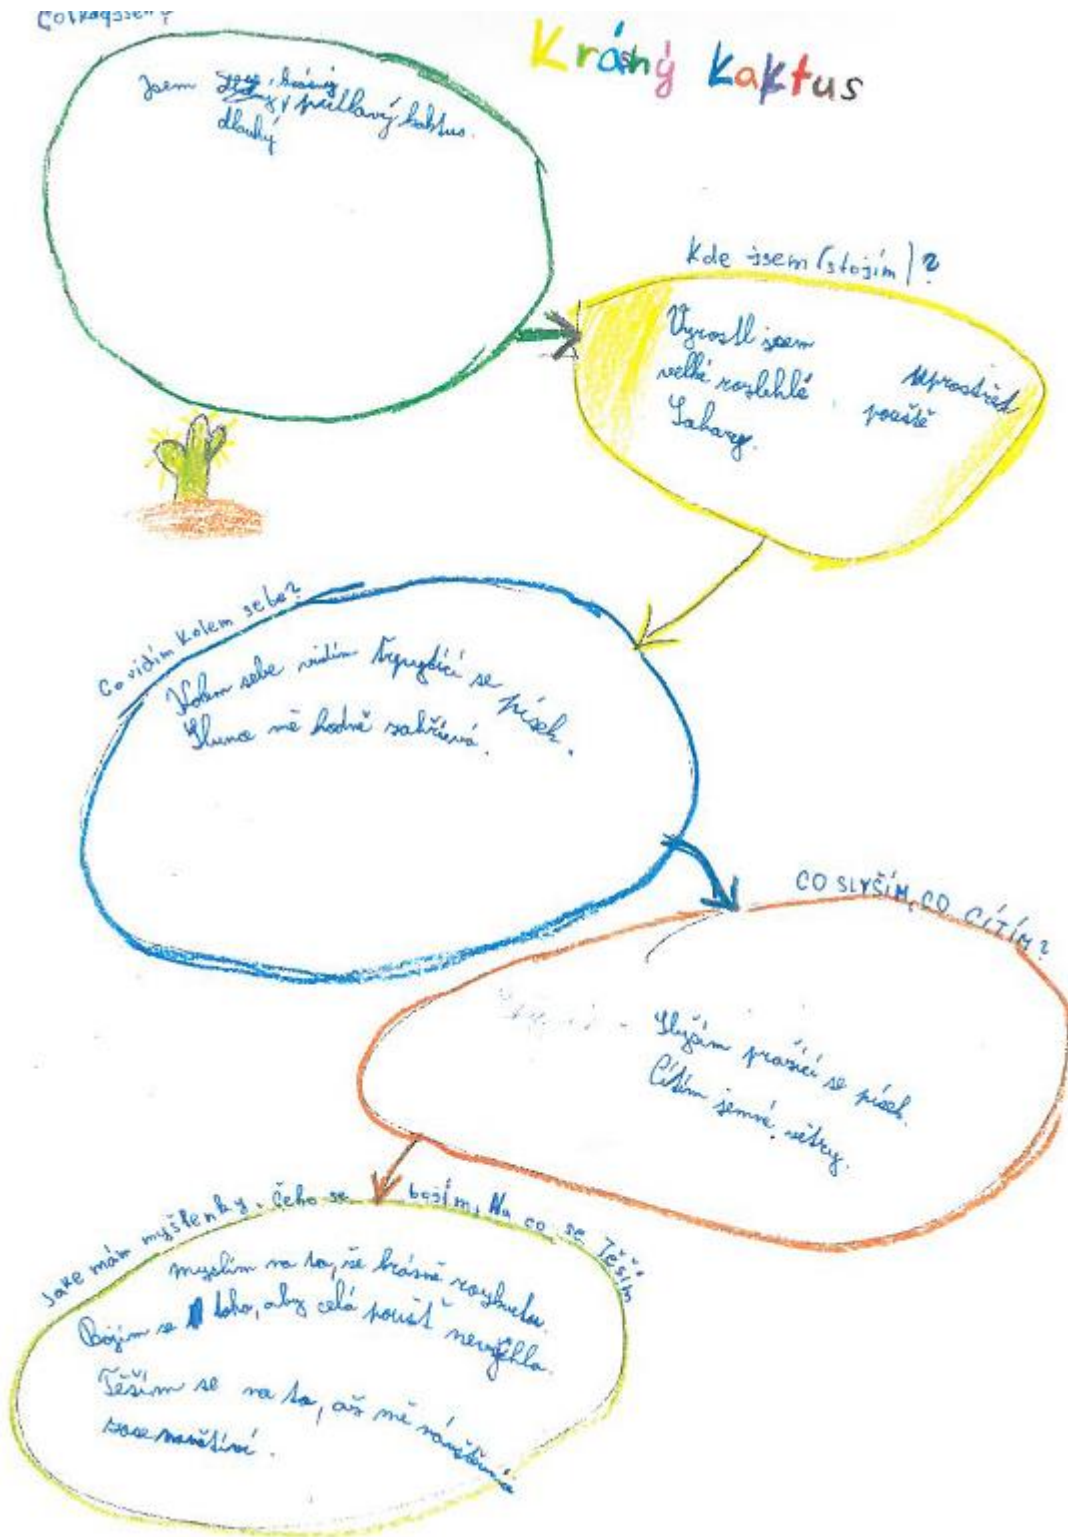 Krásný kaktus
Jsem krásný
pichlavý kaktus.
dlouhý
Kde jsem (stojím)?
Vyrostl jsem uprostřed
velké rozlehlé pouště
Sahary.
Co vidím kolem sebe?
Kolem sebe vidím třpytící se písek.
Slunce mě hodně zahřívá.
CO SLYŠÍM, CO CÍTÍM?
Slyším prašící se písek.
Cítím jemné větry.
Jaké mám myšlenky, čeho se bojím, Na co se Těším
Myslím na to, že krásně rozkvetu.
Bojím se toho, aby celá poušť nevyschla.
Těším se na to, až mě návštěvník
zase navštíví.